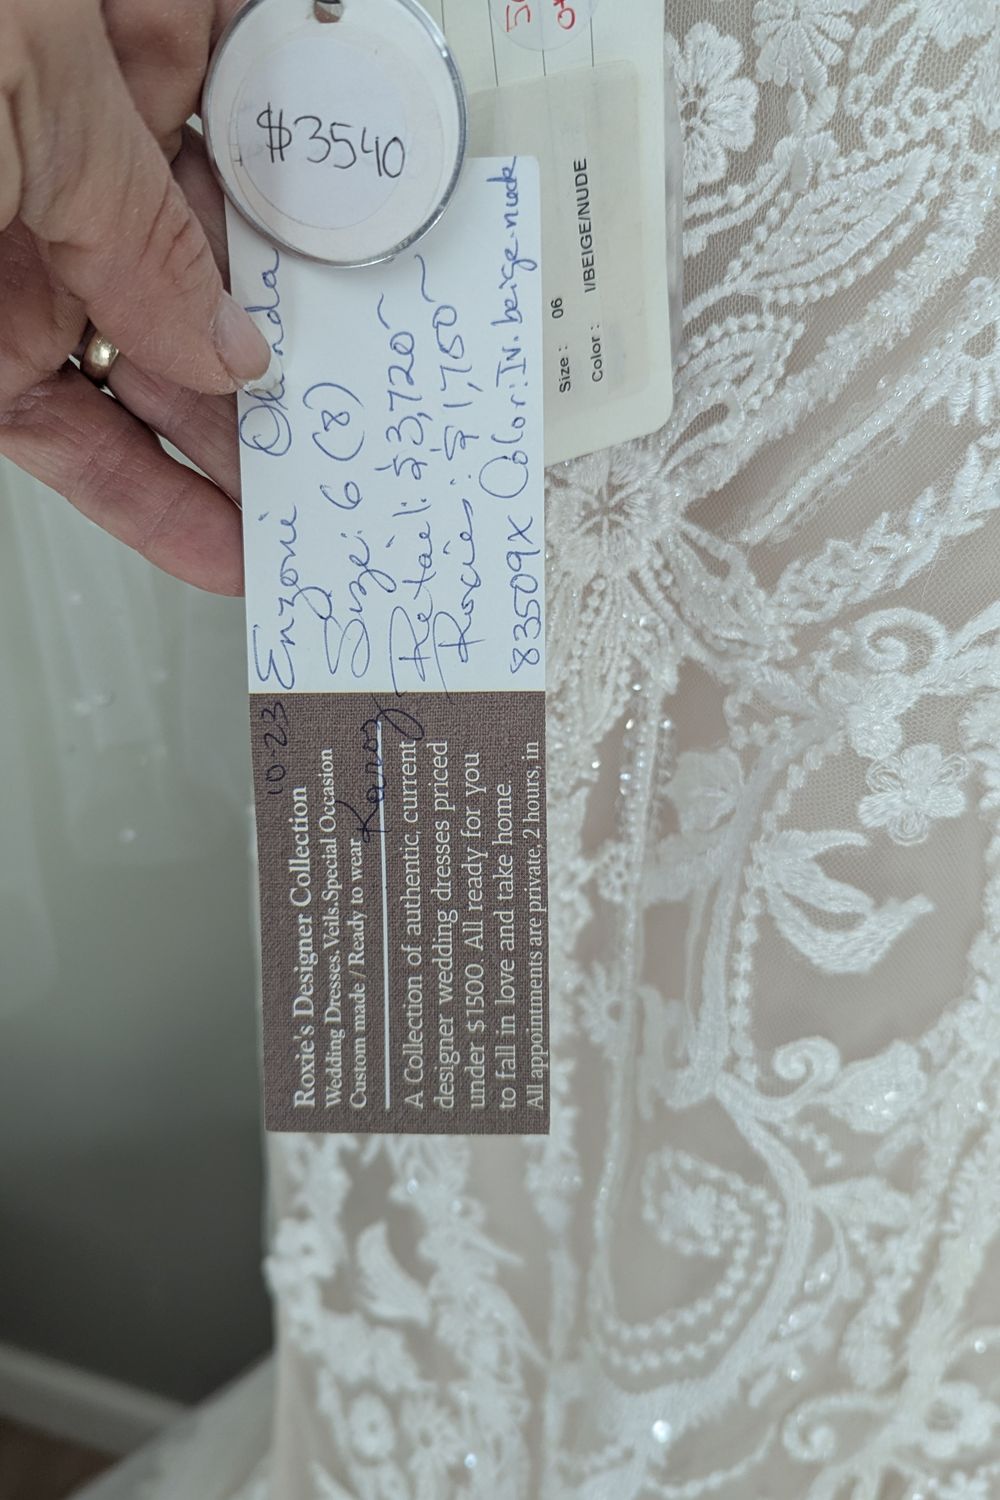 $3540
Enzoani
Size: 6 (8)
Retail: $3,720~
Roxies: $1,750~
83509X Color: Iv. beige. nude
Size : 06
Color : I/BEIGE/NUDE
10-23
Roxie's Designer Collection
Wedding Dresses. Veils. Special Occasion
Custom made / Ready to wear
A Collection of authentic, current
designer wedding dresses priced
under $1500. All ready for you
to fall in love and take home.
All appointments are private, 2 hours, in